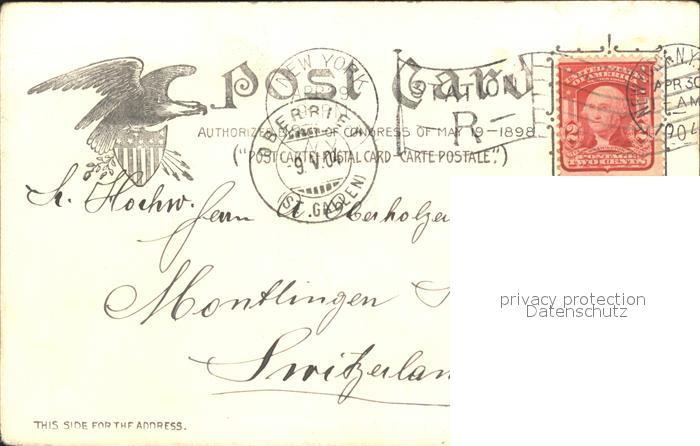 Post Card
AUTHORIZED BY ACT OF CONGRESS OF MAY 19-1898.
("POST CARTE, POSTAL CARD-CARTE POSTALE".)
NEW YORK
STATION
R
APR 30
1904
OBERRIET
9.V.04
(ST. GALLEN)
UNITED STATES
OF AMERICA
2 2
POSTAGE
TWO CENTS
Hochw. Herrn A. Oberholze
Montlingen
Switzerlan
privacy protection
Datenschutz
THIS SIDE FOR THE ADDRESS.